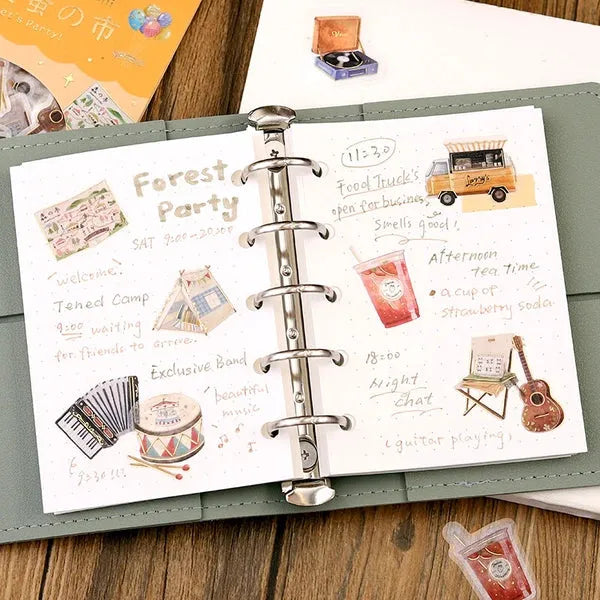 の市
Let's Party!
Forest
Party
SAT 9:00-20:00
welcome!
Tened Camp
9:00 waiting
for friends to arrive.
Exclusive Band
beautiful
music
9:30
11:30
Food Truck's
open for busines,
Smells good!
Afternoon
tea time
• a cup of
strawberry soda
18:00
Night
chat
(guitar playing)